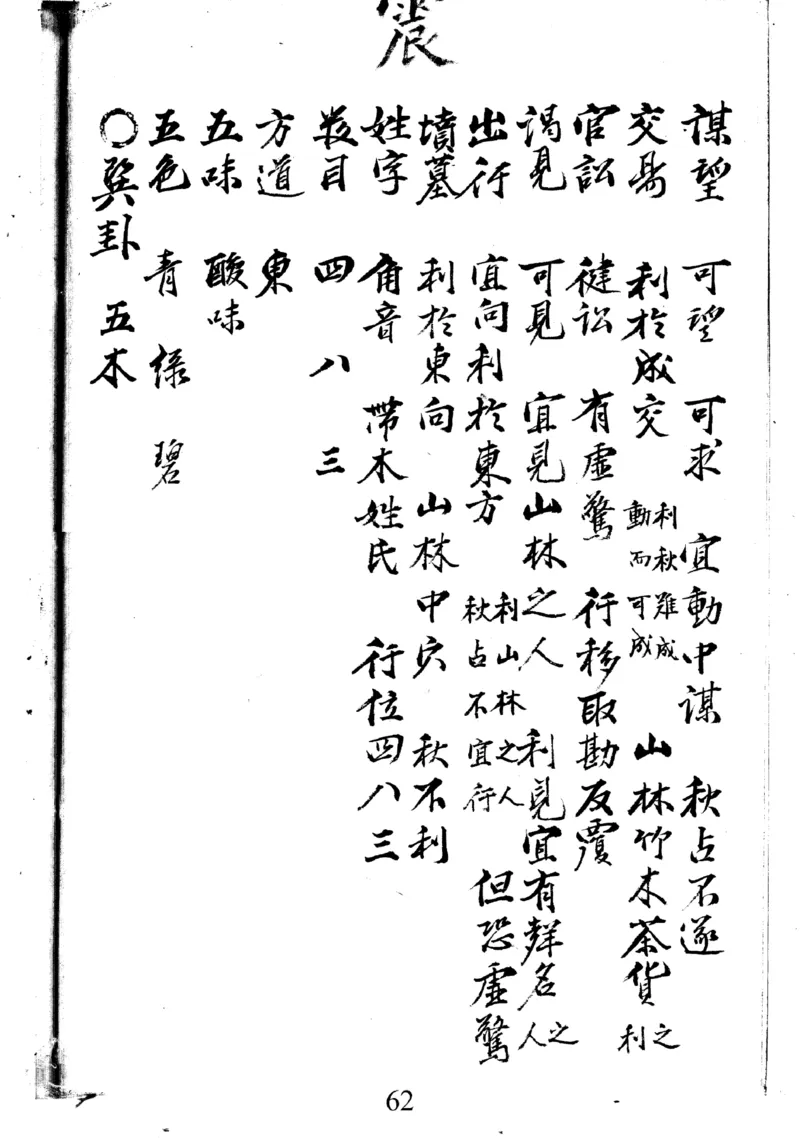 震
謀望 可望 可求 宜動中謀 秋占不遂
交易 利於成交 利秋難成 動而可成 山林竹木茶貨之利
官訟 健訟 有虛驚 行移取勘反覆
謁見 可見 宜見山林之人 利見宜有聲名之人
出行 宜向利於東方 利山林之人 秋占不宜行 但恐虛驚
墳墓 利於東向 山林中穴 秋不利
姓字 角音 帶木姓氏 行位四八三
數目 四 八 三
方道 東
五味 酸味
五色 青 綠 碧
○巽卦 五木
62